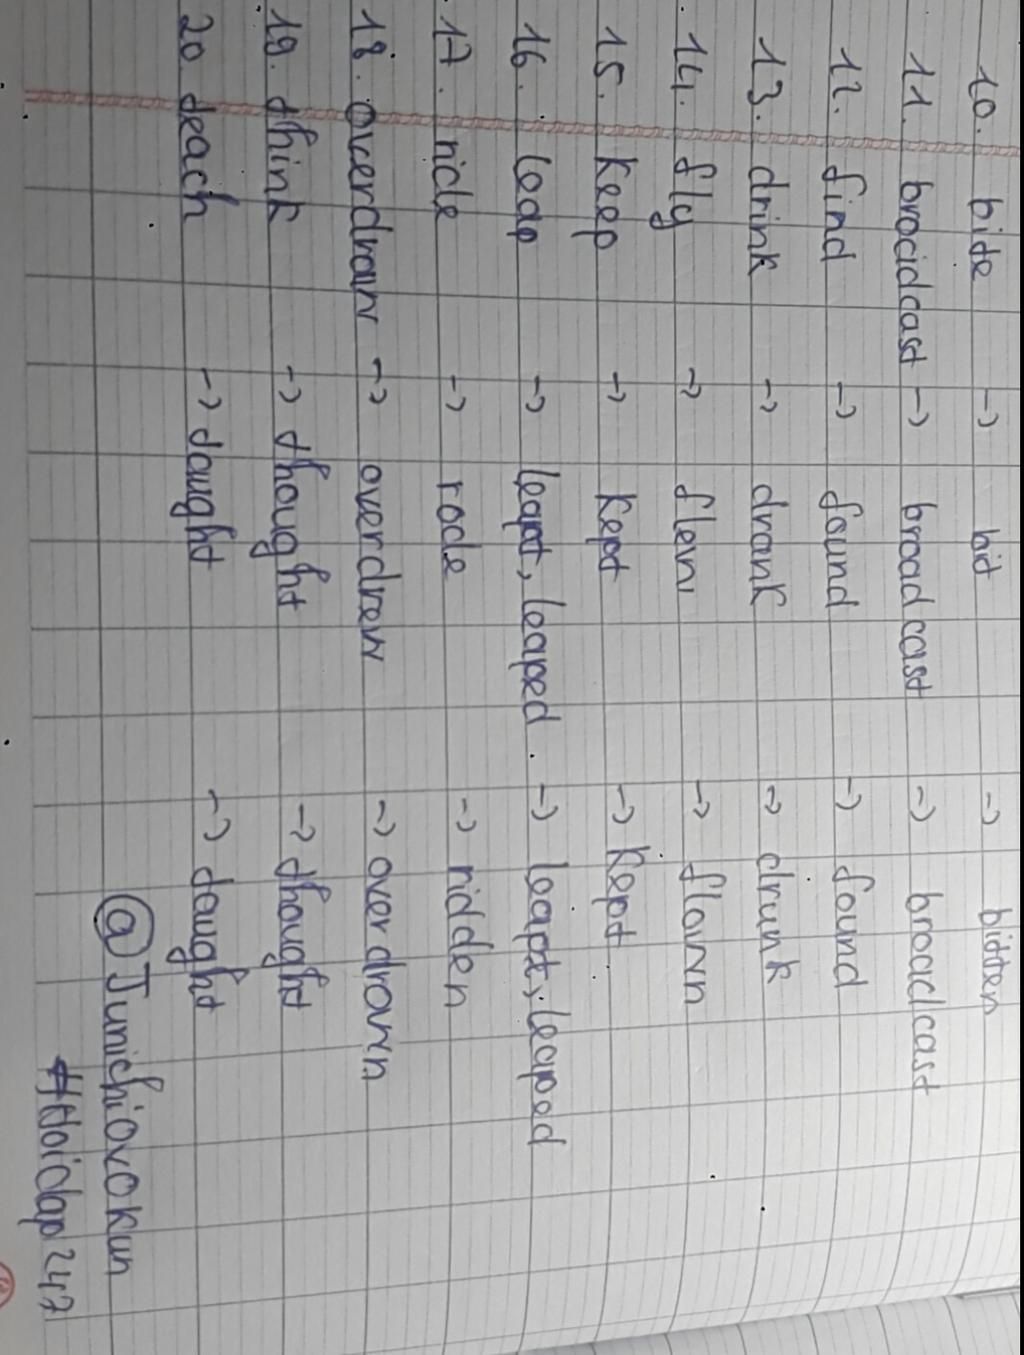 10. bite → bit → bitten
11. broadcast → broadcast → broadcast
12. find → found → found
13. drink → drank → drunk
14. fly → flew → flown
15. keep → kept → kept
16. leap → leapt, leaped. → leapt, leaped
17. ride → rode → ridden
18. overdraw → overdrew → overdrawn
19. think → thought → thought
20. teach → taught → taught
@Junichiovokun
#Hoidap247